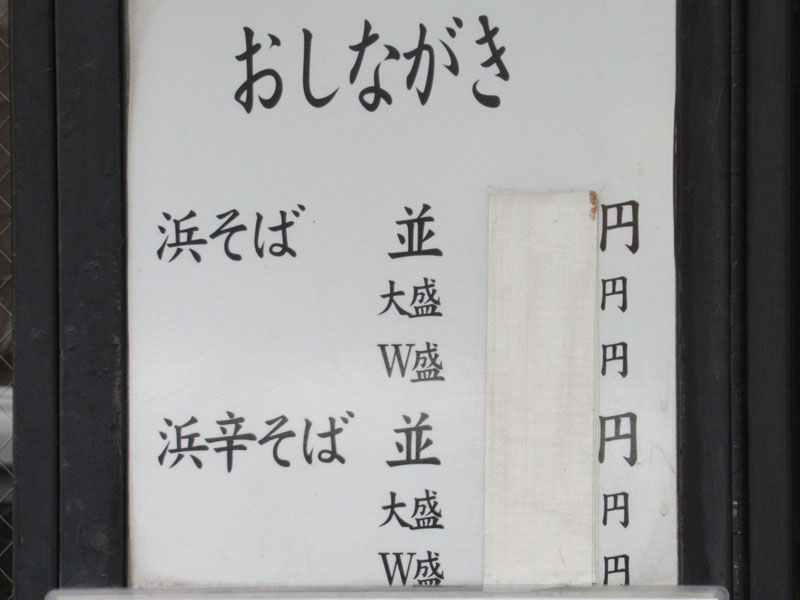 おしながき
浜そば 並 円
大盛 円
W盛 円
浜辛そば 並 円
大盛 円
W盛 円